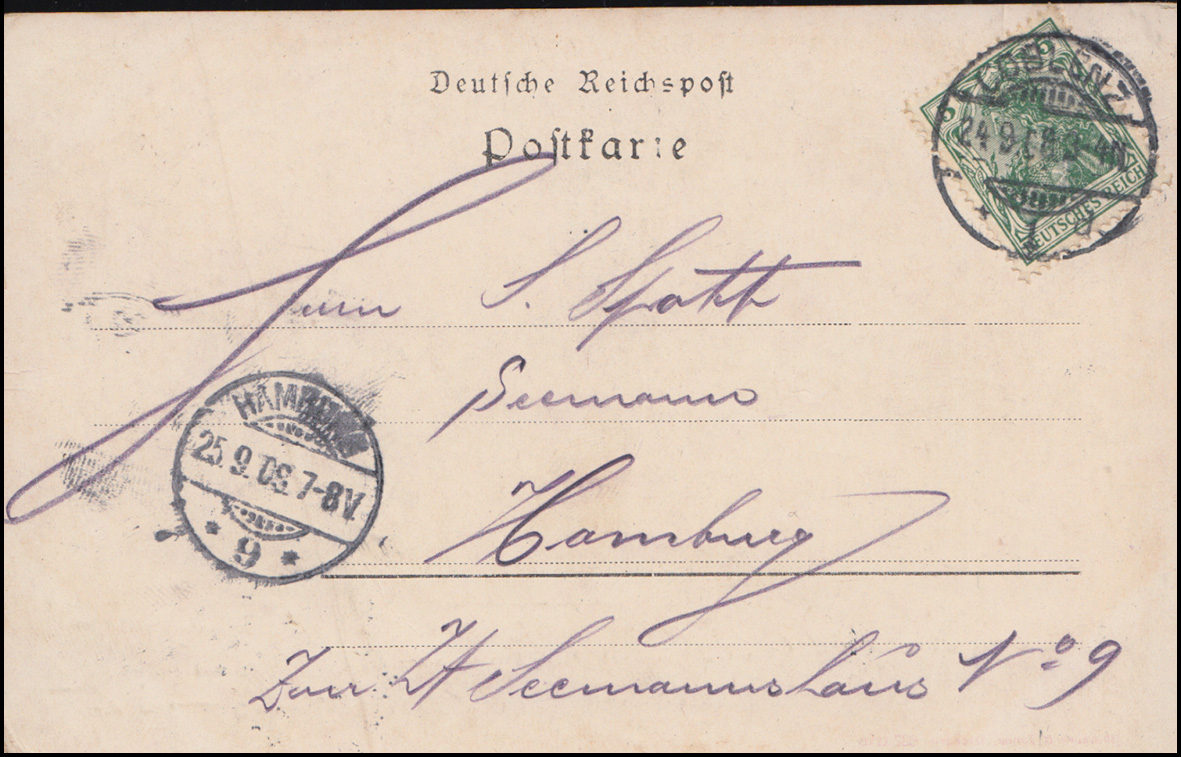 Deutsche Reichspost
Postkarte
COBLENZ
24.9.
DEUTSCHES REICH
5
5
Herrn S. Spatt
Seemann
HAMBURG
25.9.08.7-8V.
* 9 *
Hamburg
Zur Zt Seemannshaus No 9